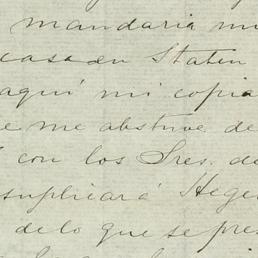 mandaria mi
casa en Staten
aquí mi copia
e me abstuve de
con los Sres. de
suplicará Hege
de lo que se pres